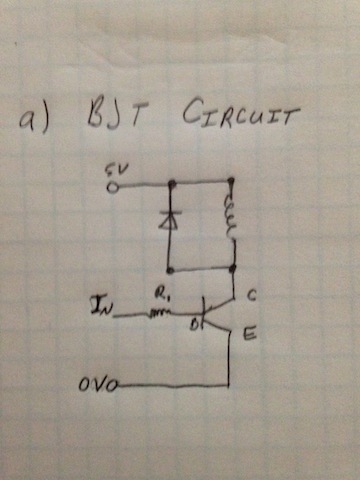 a) BJT CIRCUIT
5V
R1
IN
C
B
E
0V